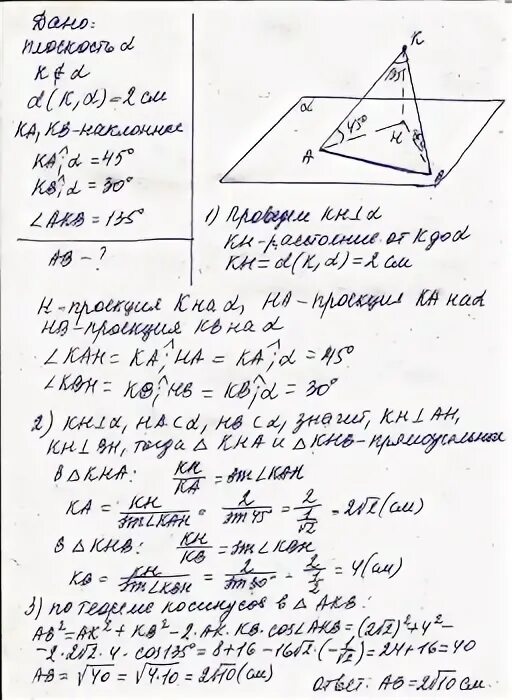 Дано:
плоскость α
K ∉ α
d(K,α)=2 см
KA, KB-наклонные
KA;^α = 45°
KB;^α = 30°
∠AKB = 135°
AB - ?
K
α
135°
45°
H
30°
A
B
1) Проведем KH⊥α
KH-расстояние от K до α
KH = d(K,α) = 2 см
H-проекция K на α, HA-проекция KA на α
HB-проекция KB на α
∠KAH = KA;^HA = KA;^α = 45°
∠KBH = KB;^HB = KB;^α = 30°
2) KH⊥α, HA⊂α, HB⊂α, значит, KH⊥AH,
KH⊥BH, тогда △KHA и △KHB-прямоугольные
В △KHA: KH/KA = sin∠KAH
KA = KH/sin∠KAH = 2/sin45 = 2/(1/√2) = 2√2 (см)
В △KHB: KH/KB = sin∠KBH
KB = KH/sin∠KBH = 2/sin30° = 2/(1/2) = 4(см)
3) по теореме косинусов в △AKB:
AB² = AK² + KB² - 2·AK·KB·cos∠AKB = (2√2)² + 4² -
- 2·2√2·4·cos135° = 8+16-16√2·(-1/√2) = 24+16 = 40
AB = √40 = √4·10 = 2√10 (см)
Ответ: AB = 2√10 см.